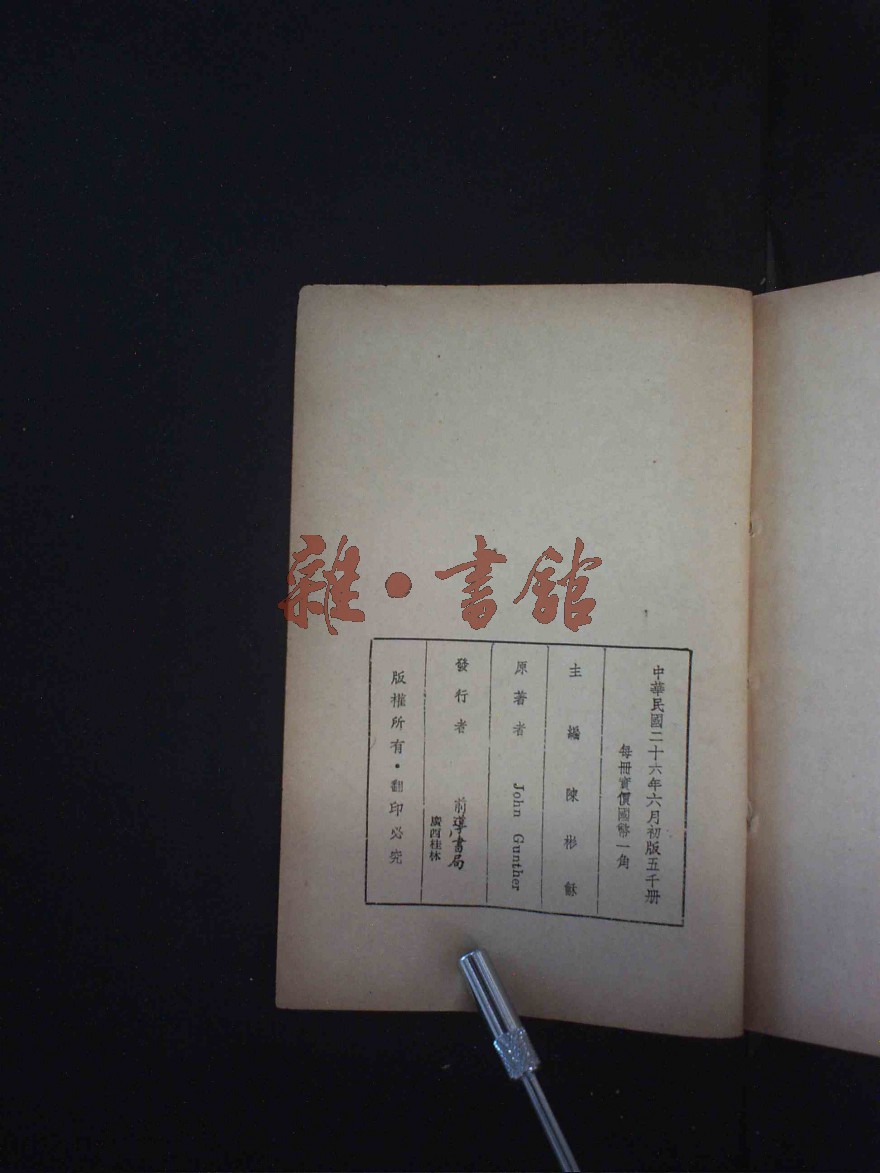 雜·書館
中華民國二十六年六月初版五千册
每冊實價國幣一角
主編 陳彬龢
原著者 John Gunther
發行者 前導書局
廣西桂林
版權所有·翻印必究